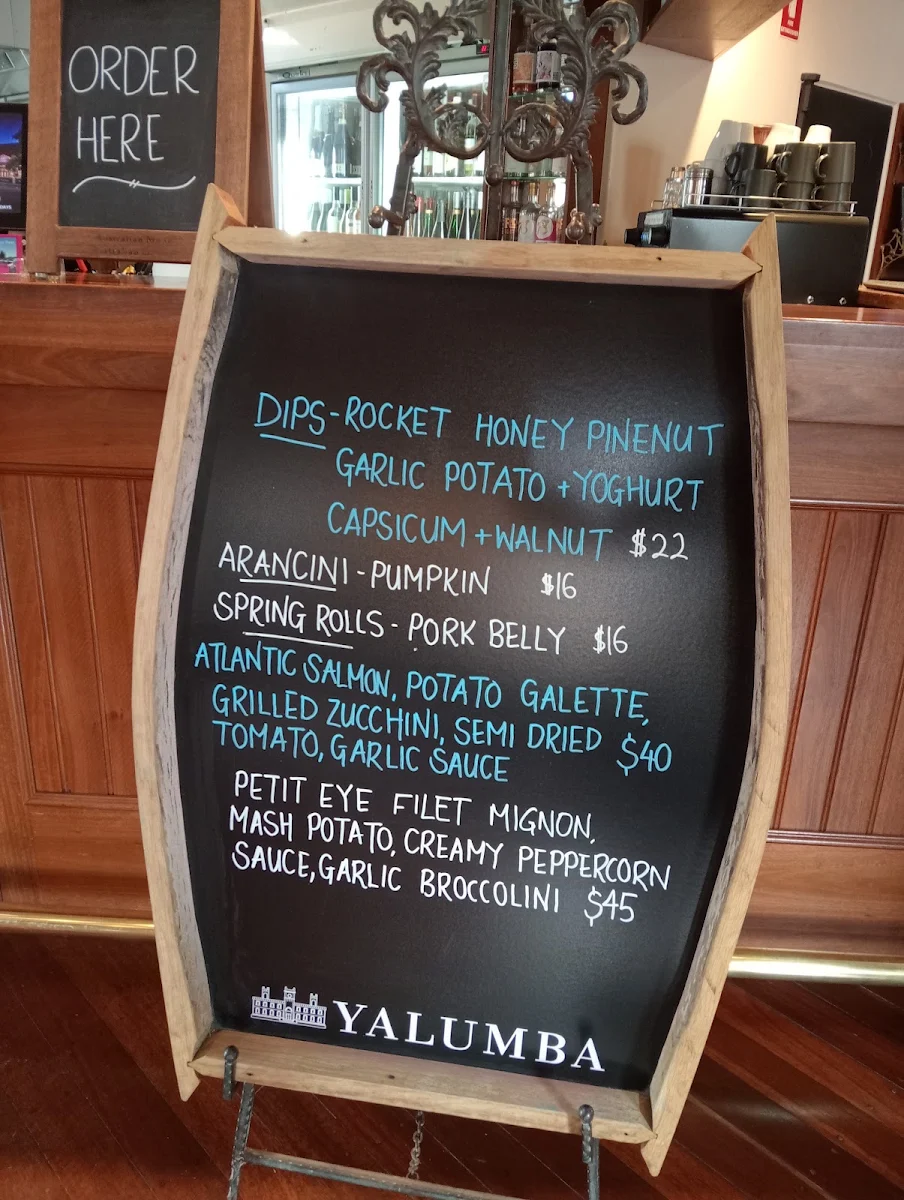 ORDER
HERE
DIPS-ROCKET HONEY PINENUT
GARLIC POTATO + YOGHURT
CAPSICUM + WALNUT $22
ARANCINI - PUMPKIN $16
SPRING ROLLS - PORK BELLY $16
ATLANTIC SALMON, POTATO GALETTE,
GRILLED ZUCCHINI, SEMI DRIED $40
TOMATO, GARLIC SAUCE
PETIT EYE FILET MIGNON,
MASH POTATO, CREAMY PEPPERCORN
SAUCE, GARLIC BROCCOLINI $45
YALUMBA